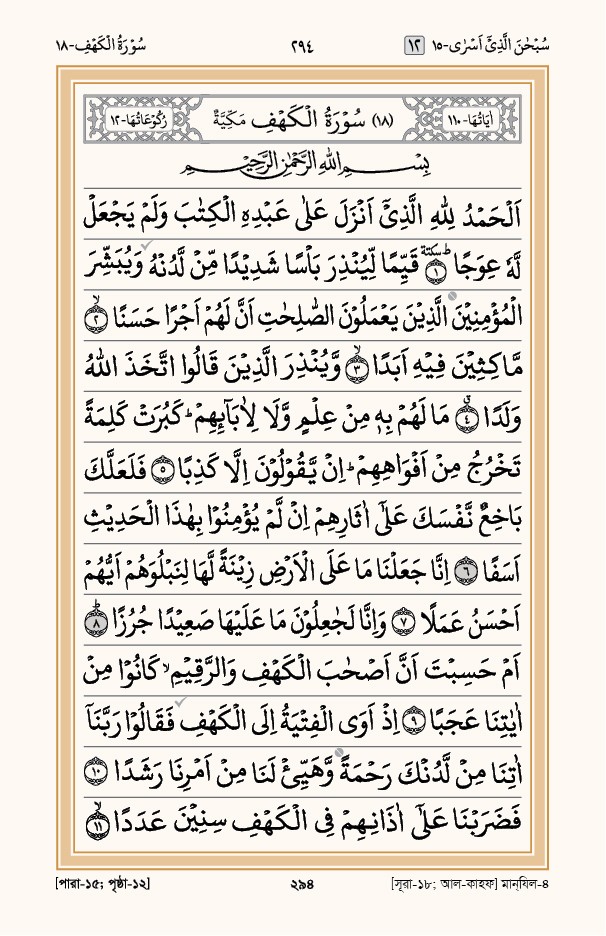 سُبْحٰنَ الَّذِيْٓ اَسْرٰى-١٥ ١٢ ٢٩٤ سُوْرَةُ الْكَهْفِ-١٨
اٰيَاتُهَا-١١٠ (١٨) سُوْرَةُ الْكَهْفِ مَكِّيَّةٌ رُكُوْعَاتُهَا-١٢
بِسْمِ اللّٰهِ الرَّحْمٰنِ الرَّحِيْمِ
اَلْحَمْدُ لِلّٰهِ الَّذِيْٓ اَنْزَلَ عَلٰى عَبْدِهِ الْكِتٰبَ وَلَمْ يَجْعَلْ
لَّهٗ عِوَجًا ؕ سكتة ١ قَيِّمًا لِّيُنْذِرَ بَاْسًا شَدِيْدًا مِّنْ لَّدُنْهُ وَيُبَشِّرَ
الْمُؤْمِنِيْنَ الَّذِيْنَ يَعْمَلُوْنَ الصّٰلِحٰتِ اَنَّ لَهُمْ اَجْرًا حَسَنًا ۙ ٢
مَّاكِثِيْنَ فِيْهِ اَبَدًا ۙ ٣ وَّيُنْذِرَ الَّذِيْنَ قَالُوا اتَّخَذَ اللّٰهُ
وَلَدًا ۗ ٤ مَا لَهُمْ بِهٖ مِنْ عِلْمٍ وَّلَا لِاٰبَآئِهِمْ ؕ كَبُرَتْ كَلِمَةً
تَخْرُجُ مِنْ اَفْوَاهِهِمْ ؕ اِنْ يَّقُوْلُوْنَ اِلَّا كَذِبًا ٥ فَلَعَلَّكَ
بَاخِعٌ نَّفْسَكَ عَلٰٓى اٰثَارِهِمْ اِنْ لَّمْ يُؤْمِنُوْا بِهٰذَا الْحَدِيْثِ
اَسَفًا ٦ اِنَّا جَعَلْنَا مَا عَلَى الْاَرْضِ زِيْنَةً لَّهَا لِنَبْلُوَهُمْ اَيُّهُمْ
اَحْسَنُ عَمَلًا ٧ وَاِنَّا لَجٰعِلُوْنَ مَا عَلَيْهَا صَعِيْدًا جُرُزًا ؕ ٨
اَمْ حَسِبْتَ اَنَّ اَصْحٰبَ الْكَهْفِ وَالرَّقِيْمِ ۙ كَانُوْا مِنْ
اٰيٰتِنَا عَجَبًا ٩ اِذْ اَوَى الْفِتْيَةُ اِلَى الْكَهْفِ فَقَالُوْا رَبَّنَآ
اٰتِنَا مِنْ لَّدُنْكَ رَحْمَةً وَّهَيِّئْ لَنَا مِنْ اَمْرِنَا رَشَدًا ١٠
فَضَرَبْنَا عَلٰٓى اٰذَانِهِمْ فِى الْكَهْفِ سِنِيْنَ عَدَدًا ۙ ١١
[পারা-১৫; পৃষ্ঠা-১২] ২৯৪ [সূরা-১৮; আল-কাহফ] মান্‌যিল-৪